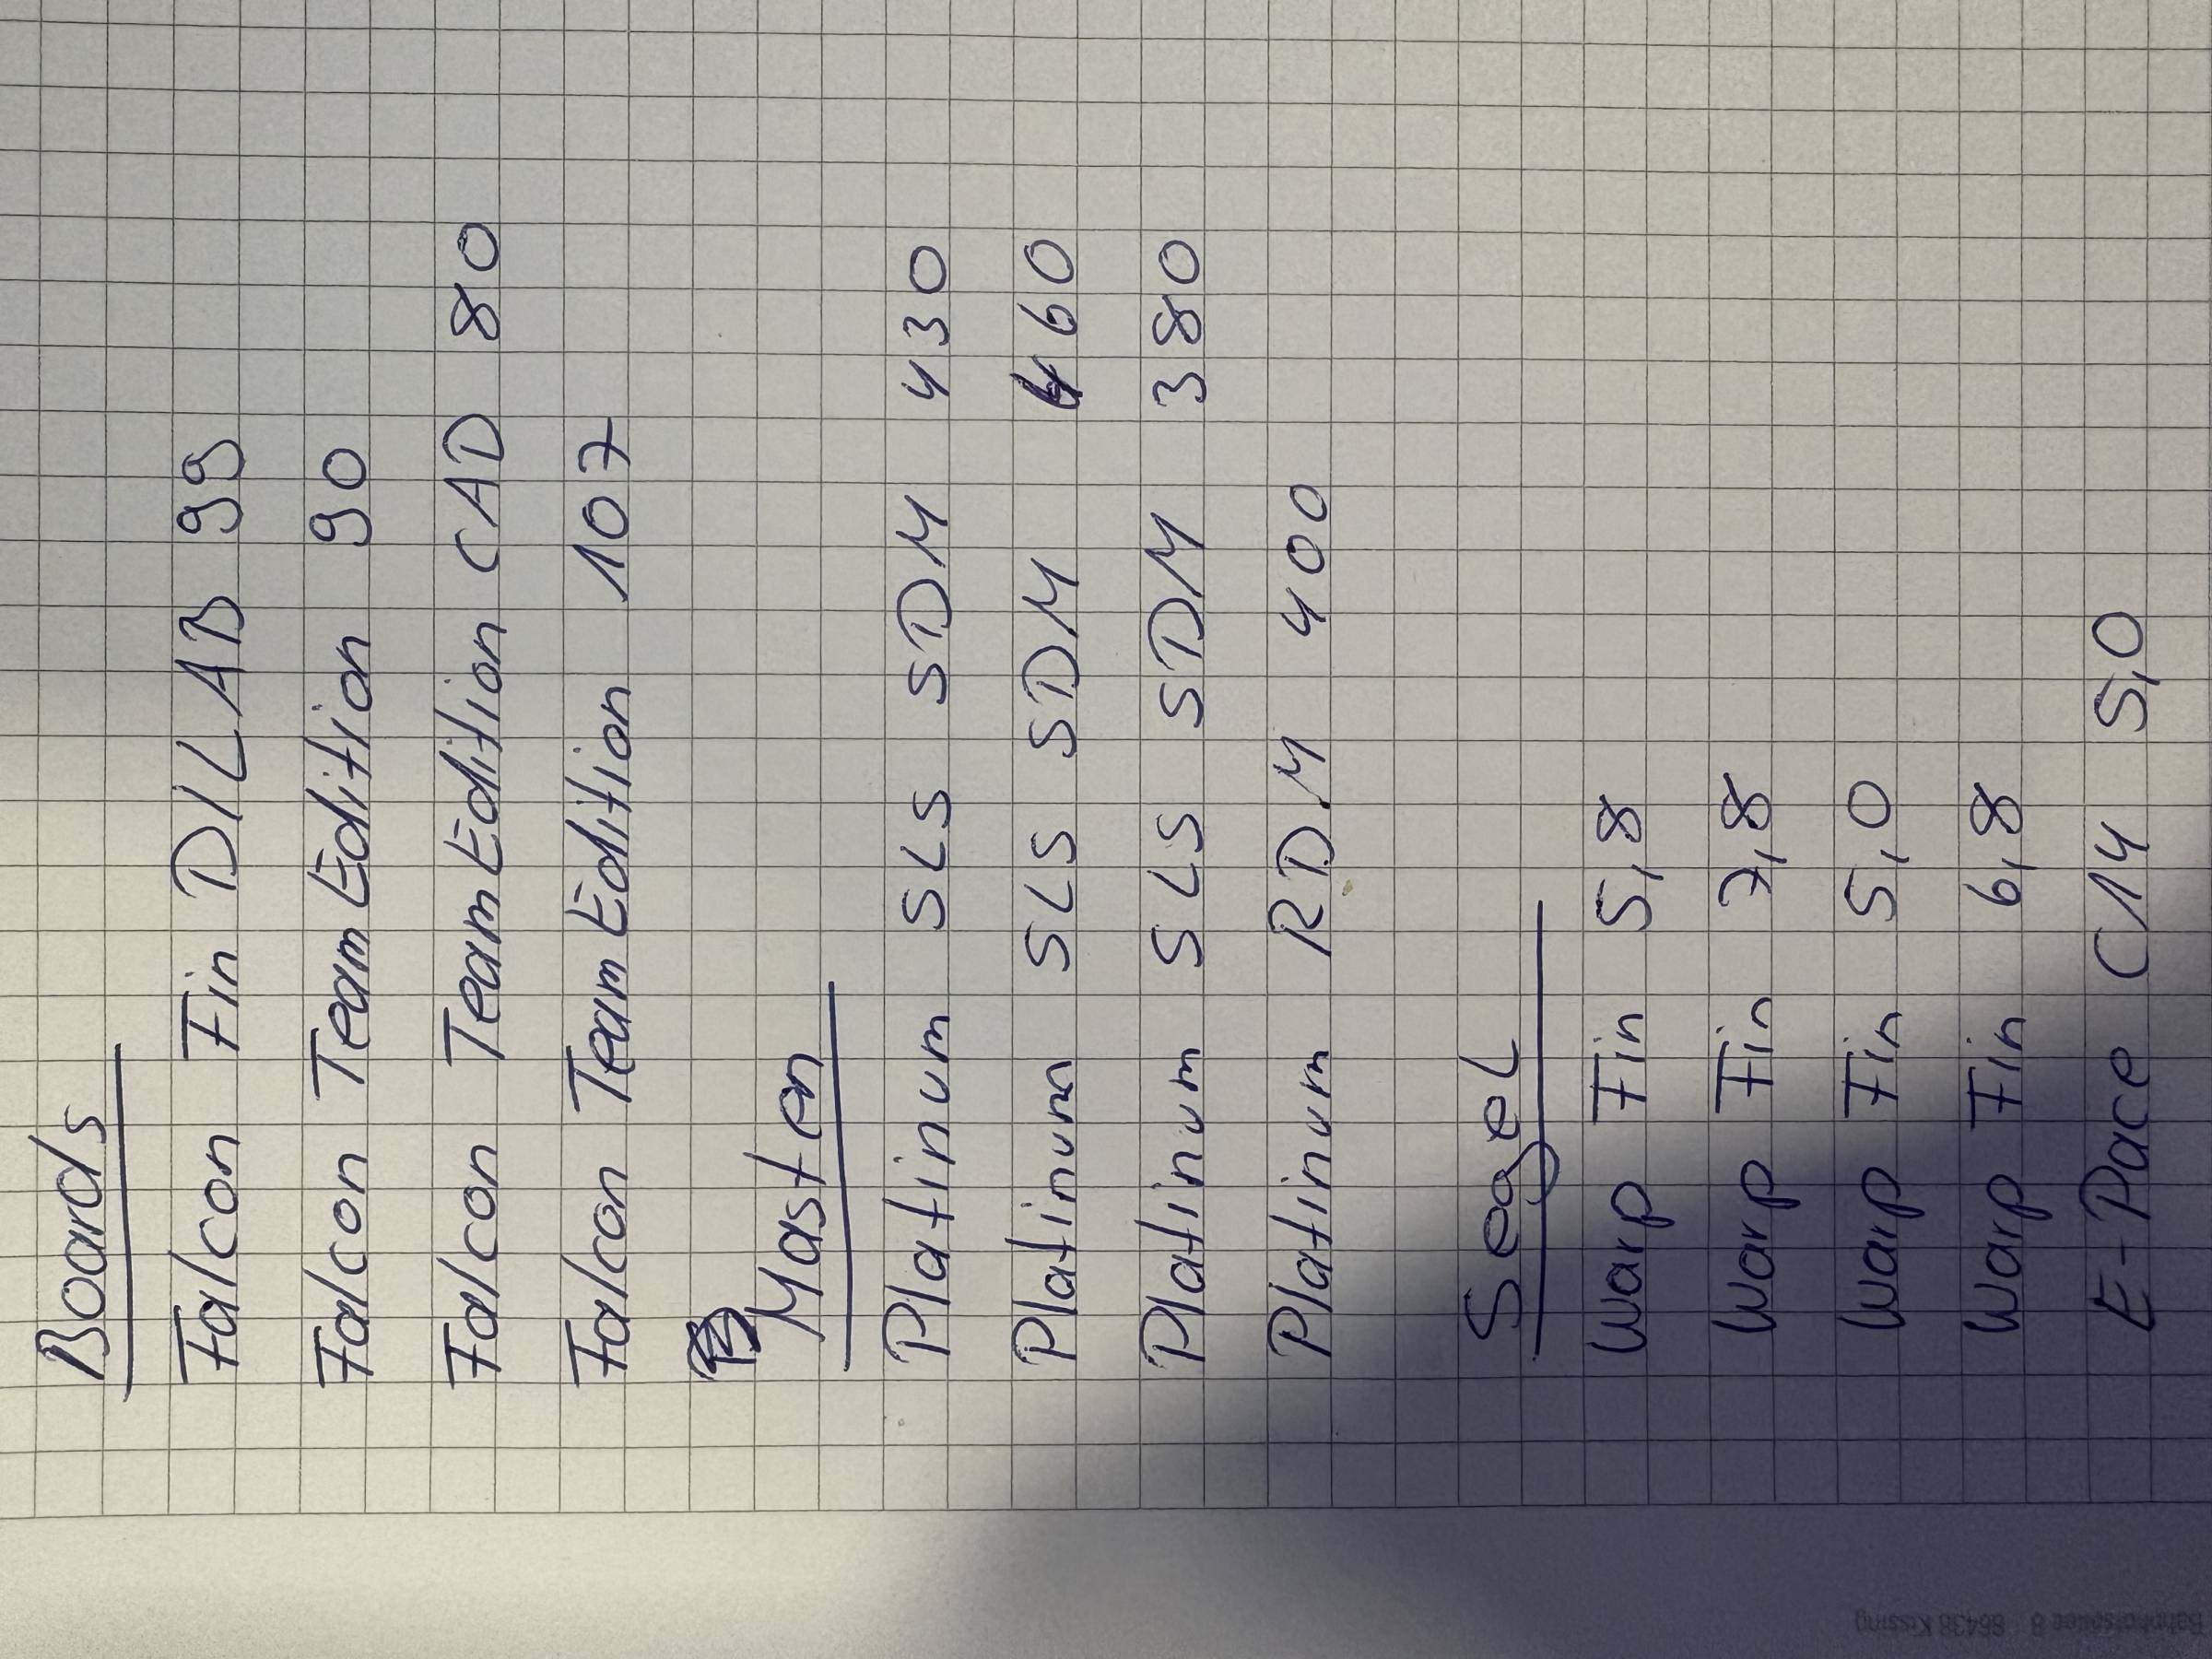 Boards
Falcon Fin DILAB 99
Falcon Team Edition 90
Falcon Team Edition CAD 80
Falcon Team Edition 107
Masten
Platinum SLS SDM 430
Platinum SLS SDM 460
Platinum SLS SDM 380
Platinum RDM 400
Segel
Warp Fin 5,8
Warp Fin 7,8
Warp Fin 5,0
Warp Fin 6,8
E-Pace C14 5,0
86438 Kissing